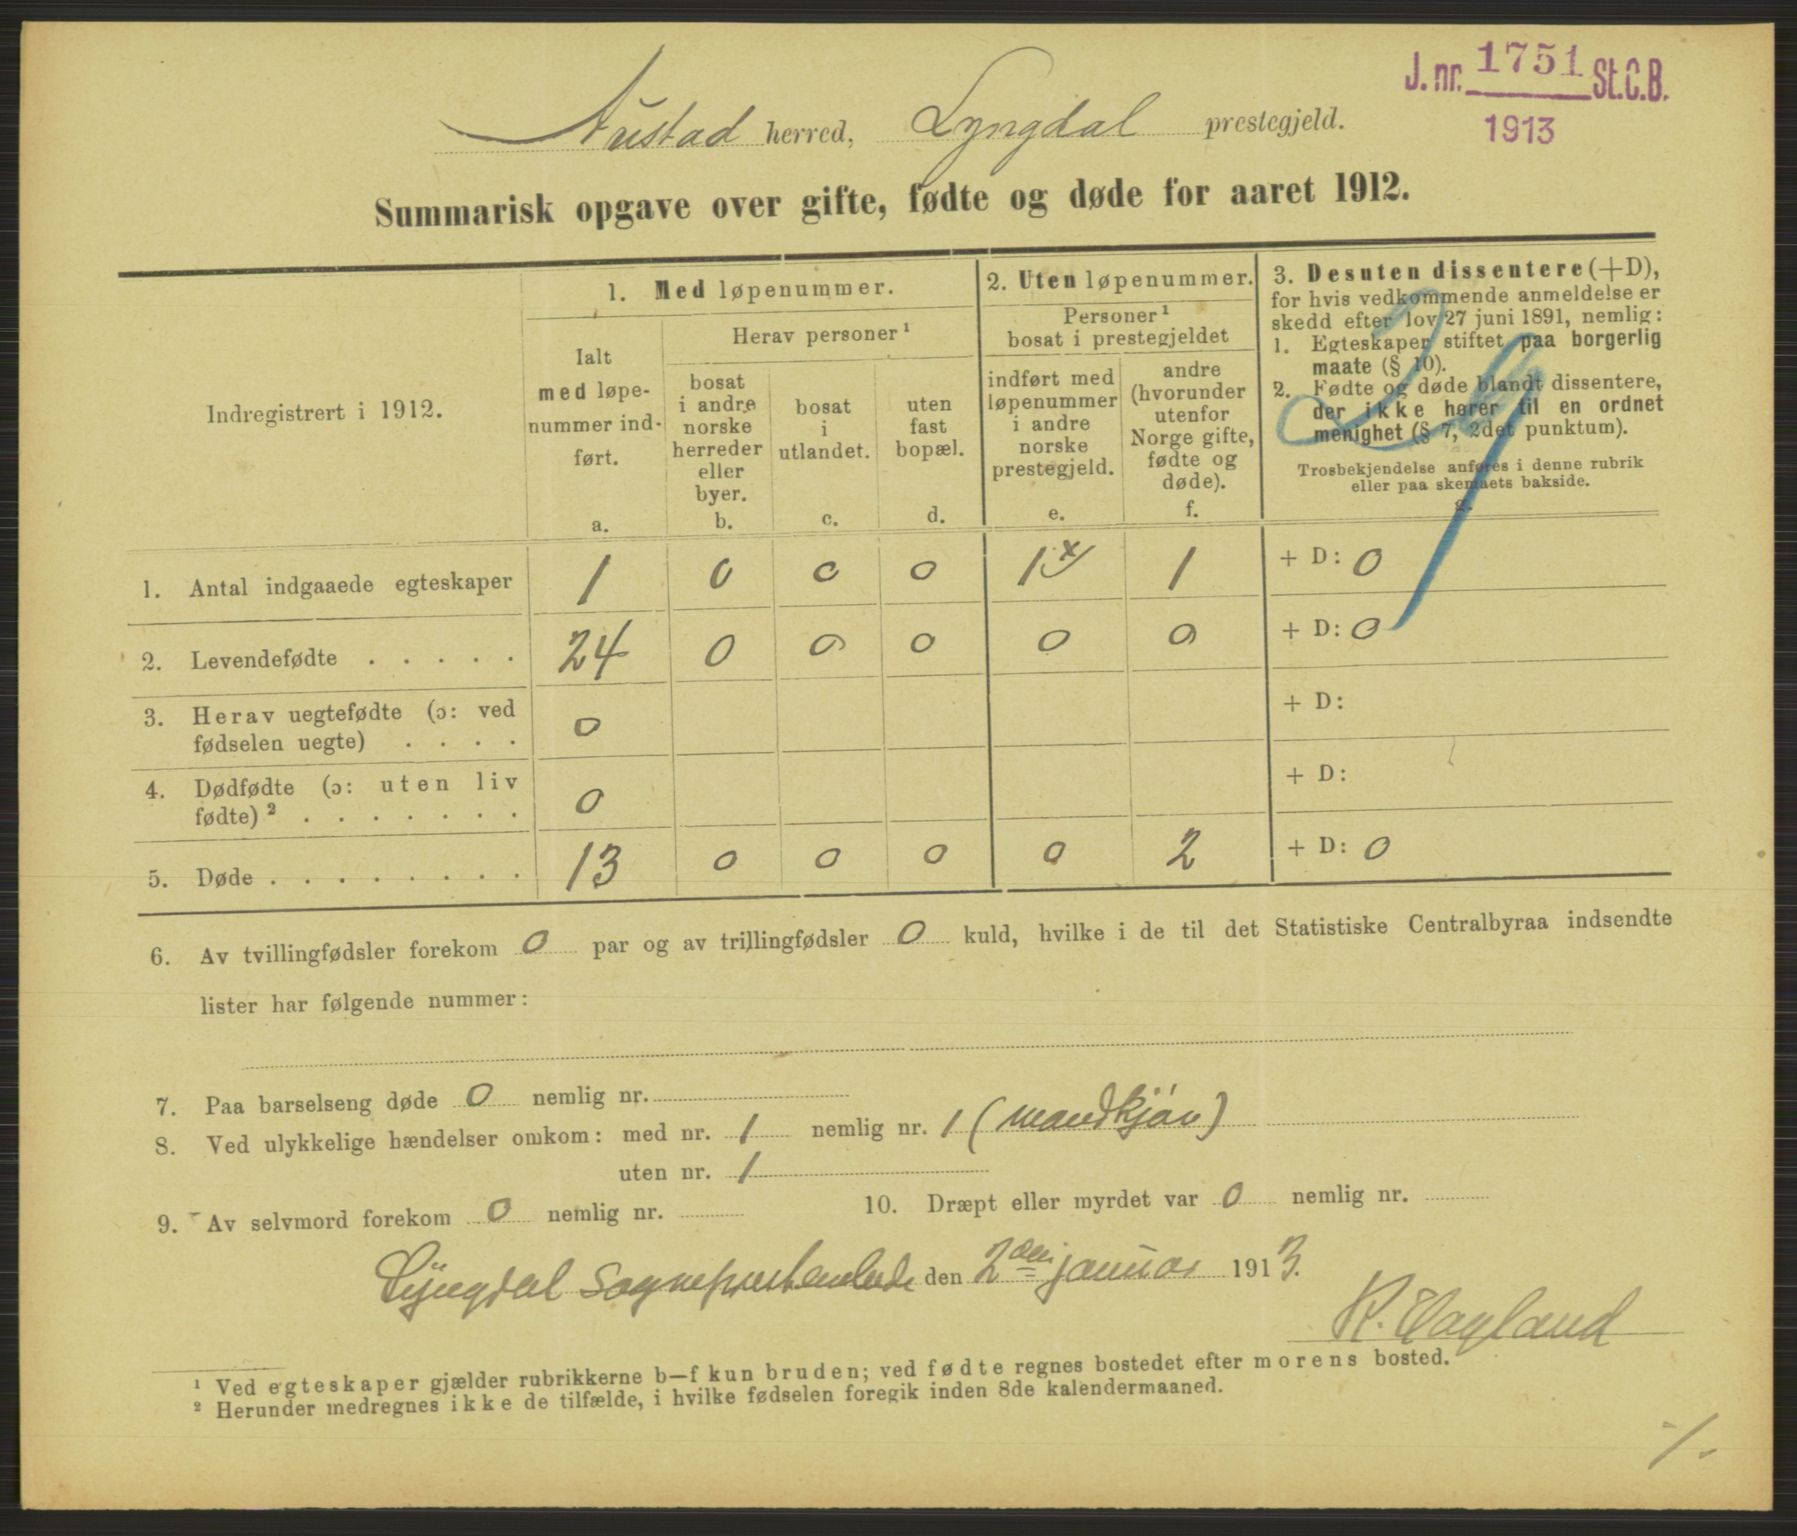 J. nr. 1751 St.C.B.
1913
Austad herred, Lyngdal prestegjeld.
Summarisk opgave over gifte, fødte og døde for aaret 1912.
Indregistrert i 1912.
1. Med løpenummer.
Ialt med løpe-nummer ind-ført.
a.
Herav personer ¹
bosat i andre norske herreder eller byer.
b.
bosat i utlandet.
c.
uten fast bopæl.
d.
2. Uten løpenummer.
Personer ¹ bosat i prestegjeldet
indført med løpenummer i andre norske prestegjeld.
e.
andre (hvorunder utenfor Norge gifte, fødte og døde).
f.
3. Desuten dissentere (+D),
for hvis vedkommende anmeldelse er
skedd efter lov 27 juni 1891, nemlig:
1. Egteskaper stiftet paa borgerlig
maate (§ 10).
2. Fødte og døde blandt dissentere,
der ikke hører til en ordnet
menighet (§ 7, 2det punktum).
Trosbekjendelse anføres i denne rubrik
eller paa skemaets bakside.
g.
1. Antal indgaaede egteskaper 1 0 0 0 1 x) 1 + D: 0
2. Levendefødte . . . . . 24 0 0 0 0 0 + D: 0
3. Herav uegtefødte (ɔ: ved
fødselen uegte) . . . . 0 + D:
4. Dødfødte (ɔ: uten liv
fødte) ² . . . . . . . 0 + D:
5. Døde . . . . . . . . 13 0 0 0 0 2 + D: 0
6. Av tvillingfødsler forekom 0 par og av trillingfødsler 0 kuld, hvilke i de til det Statistiske Centralbyraa indsendte
lister har følgende nummer:
7. Paa barselseng døde 0 nemlig nr.
8. Ved ulykkelige hændelser omkom: med nr. 1 nemlig nr. 1 (mandkjøn)
uten nr. 1
9. Av selvmord forekom 0 nemlig nr. 10. Dræpt eller myrdet var 0 nemlig nr.
Lyngdal sogneprestembede den 2den januar 1913.
K. Vagland
¹ Ved egteskaper gjælder rubrikkerne b—f kun bruden; ved fødte regnes bostedet efter morens bosted.
² Herunder medregnes ikke de tilfælde, i hvilke fødselen foregik inden 8de kalendermaaned.